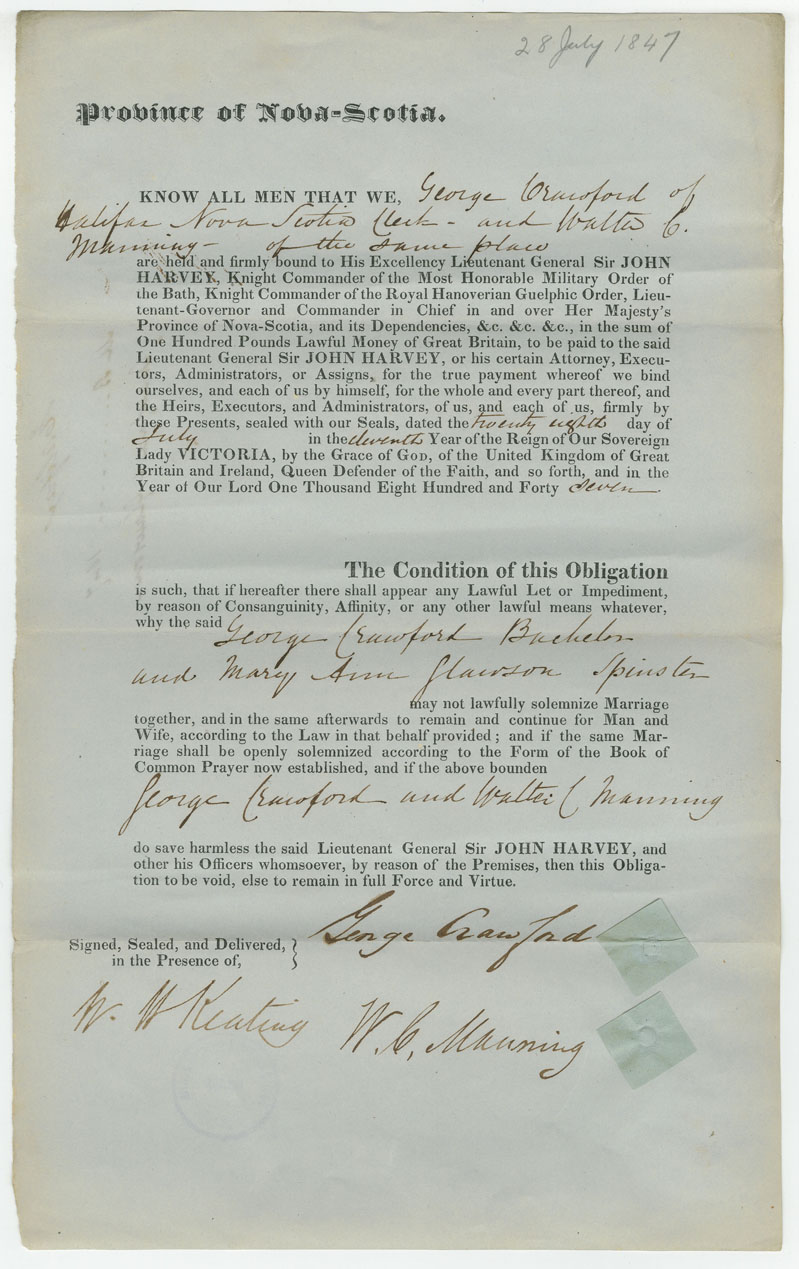 28 July 1847
Province of Nova-Scotia.
KNOW ALL MEN THAT WE, George Crawford of
Halifax Nova Scotia Clerk - and Walter C.
Manning - of the same place
are held and firmly bound to His Excellency Lieutenant General Sir JOHN
HARVEY, Knight Commander of the Most Honorable Military Order of
the Bath, Knight Commander of the Royal Hanoverian Guelphic Order, Lieu-
tenant-Governor and Commander in Chief in and over Her Majesty's
Province of Nova-Scotia, and its Dependencies, &c. &c. &c., in the sum of
One Hundred Pounds Lawful Money of Great Britain, to be paid to the said
Lieutenant General Sir JOHN HARVEY, or his certain Attorney, Execu-
tors, Administrators, or Assigns, for the true payment whereof we bind
ourselves, and each of us by himself, for the whole and every part thereof, and
the Heirs, Executors, and Administrators, of us, and each of us, firmly by
these Presents, sealed with our Seals, dated the twenty eighth day of
July in the eleventh Year of the Reign of Our Sovereign
Lady VICTORIA, by the Grace of GOD, of the United Kingdom of Great
Britain and Ireland, Queen Defender of the Faith, and so forth, and in the
Year of Our Lord One Thousand Eight Hundred and Forty seven
The Condition of this Obligation
is such, that if hereafter there shall appear any Lawful Let or Impediment,
by reason of Consanguinity, Affinity, or any other lawful means whatever,
why the said George Crawford Bachelor
and Mary Ann Glawson Spinster
may not lawfully solemnize Marriage
together, and in the same afterwards to remain and continue for Man and
Wife, according to the Law in that behalf provided; and if the same Mar-
riage shall be openly solemnized according to the Form of the Book of
Common Prayer now established, and if the above bounden
George Crawford and Walter C Manning
do save harmless the said Lieutenant General Sir JOHN HARVEY, and
other his Officers whomsoever, by reason of the Premises, then this Obliga-
tion to be void, else to remain in full Force and Virtue.
George Crawford
Signed, Sealed, and Delivered,
in the Presence of,
W. H Keating
W. C. Manning